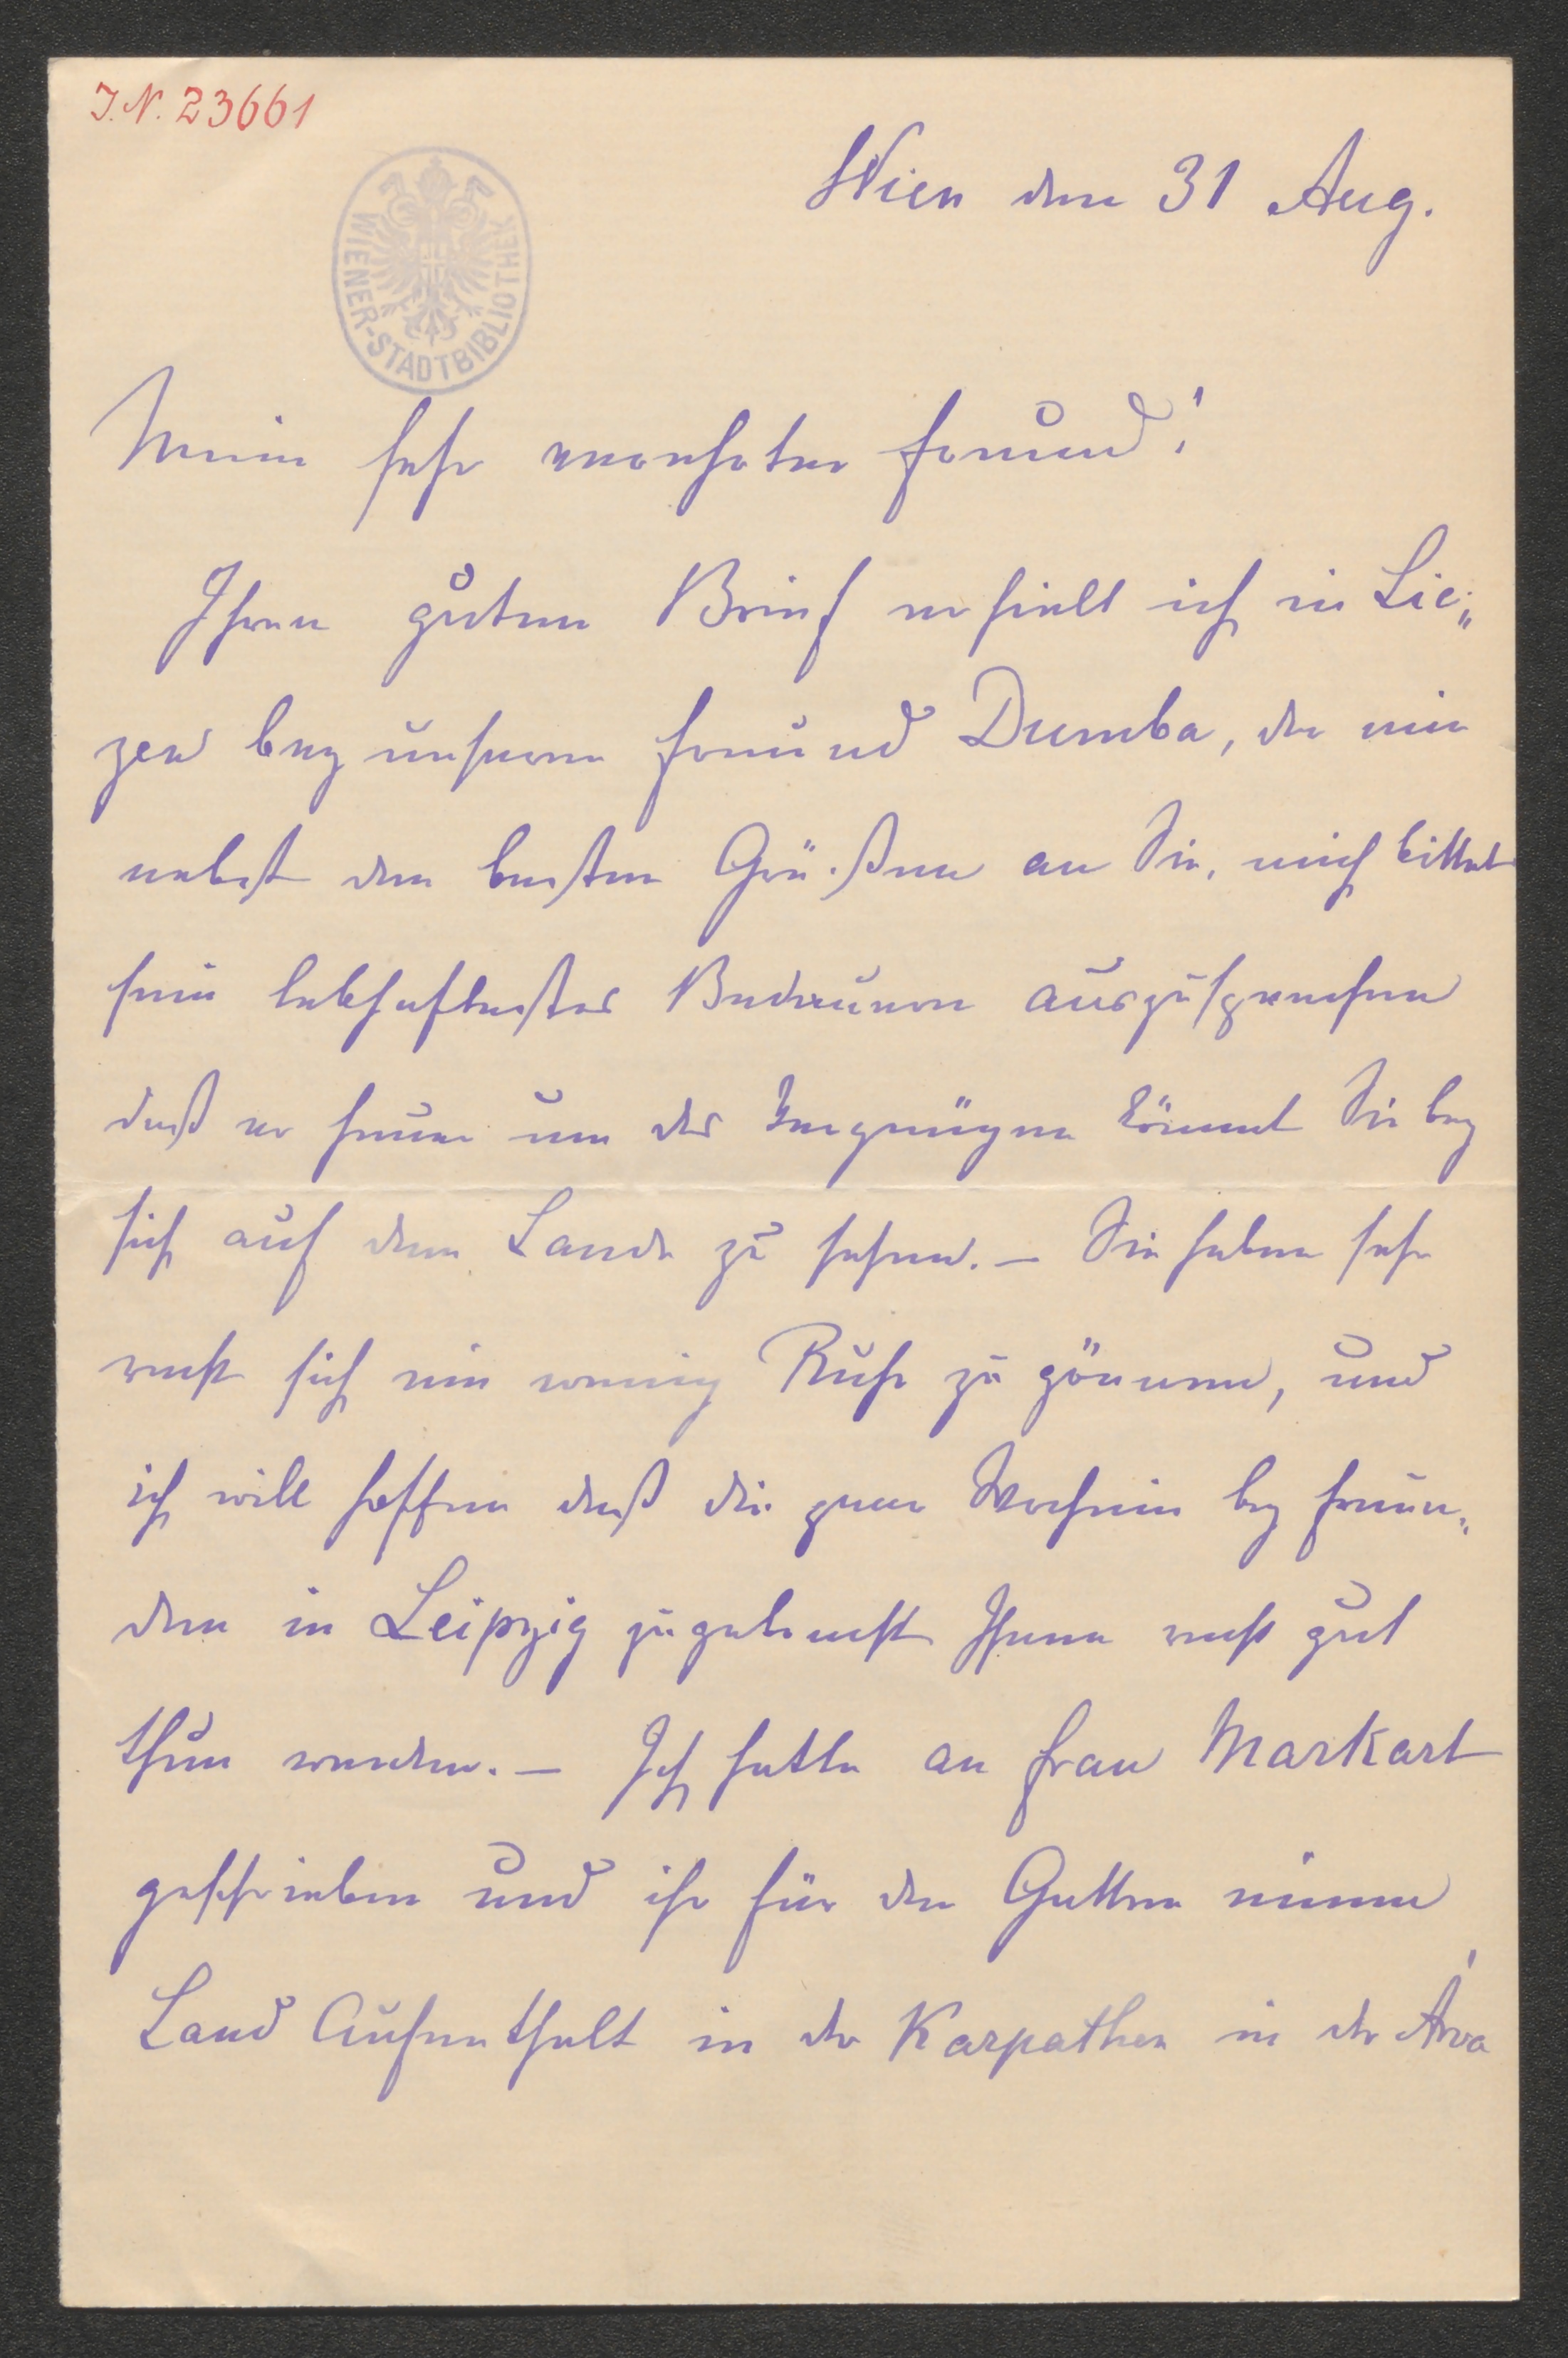 J.N. 23661
WIENER-STADTBIBLIOTHEK
Wien den 31 Aug.
Mein sehr verehrter Freund!
Ihren guten Brief erhielt ich in Lie„
zen bey unserem Freund Dumba, der mir
nebst den besten Grüßen an Sie, mich bittet
sein lebhaftestes Bedauern auszusprechen
daß er heuer um das Vergnügen kömmt Sie bey
sich auf dem Lande zu sehen. – Sie haben sehr
recht sich ein wenig Ruhe zu gönnen, und
ich will hoffen daß die paar Wochen bey Freun„
den in Leipzig zugebracht Ihnen recht gut
thun werden. – Ich hatte an Frau Markart
geschrieben und ihr für den Gatten einen
Land Aufenthalt in der Karpathen in der Árva